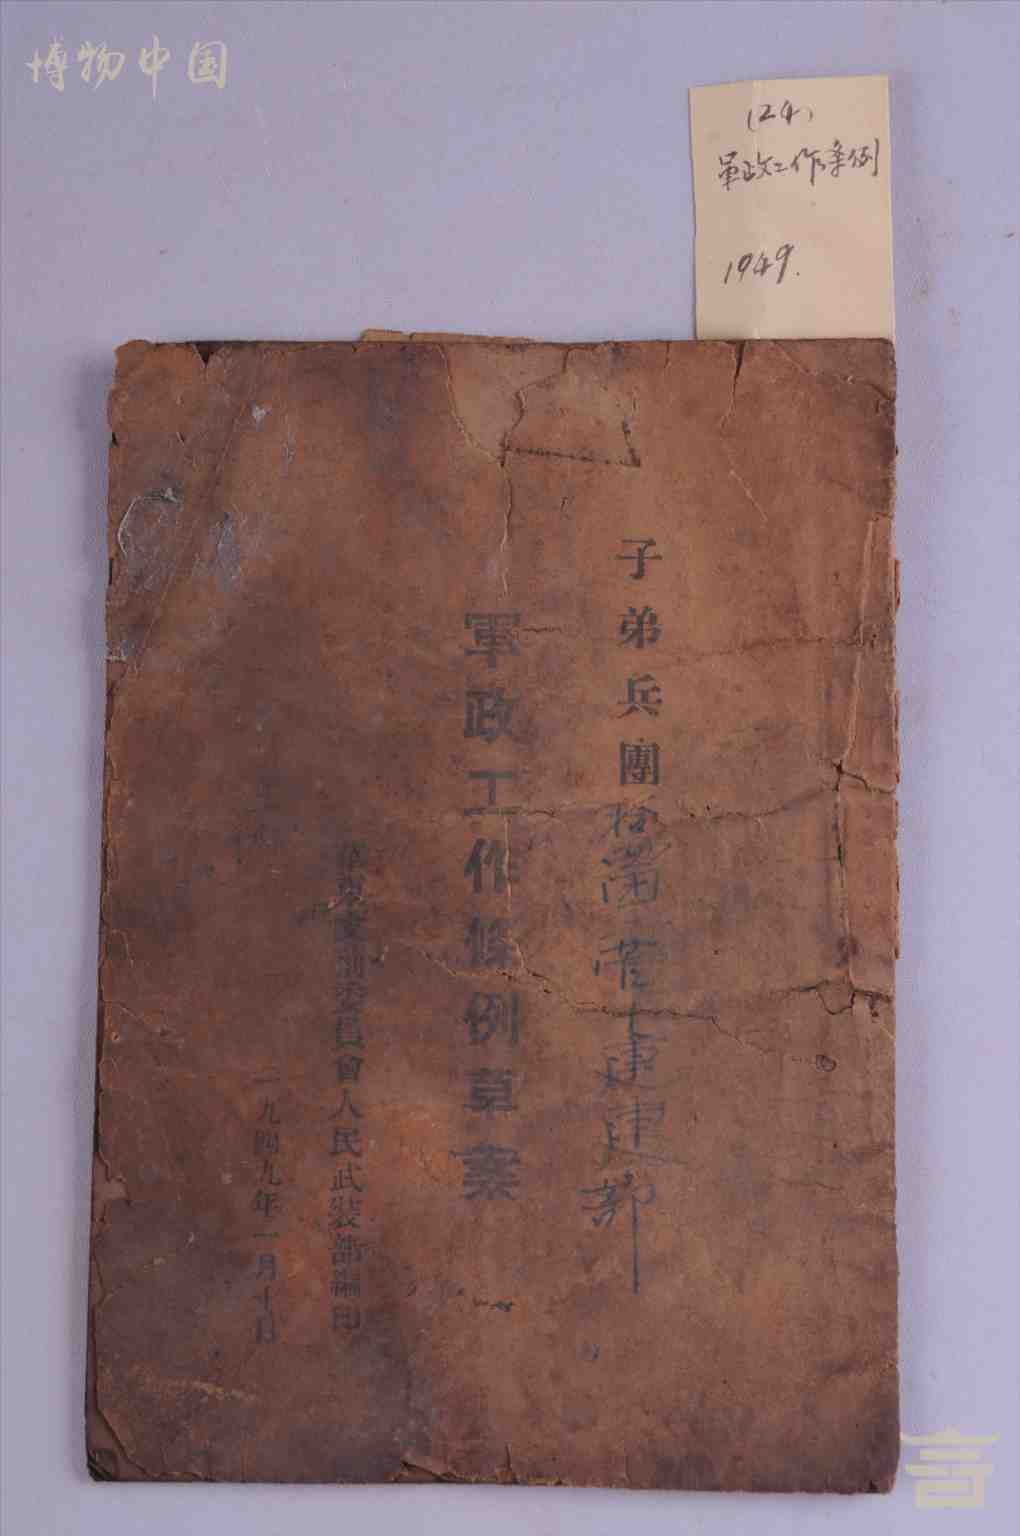 博物中国
(24)
軍政工作条例
1949.
子弟兵團
軍政工作條例草案
委員會人民武裝部編印
一九四九年一月十日